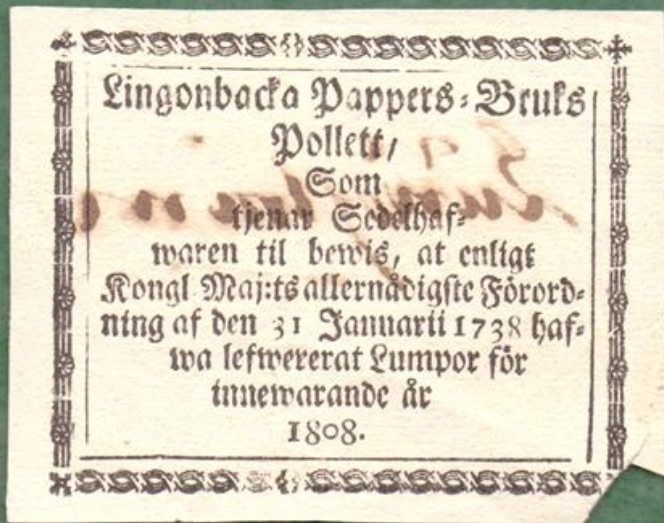 Lingonbacka Pappers-Bruks
Pollett,
Som
tjenar Sedelhaf-
waren til bewis, at enligt
Kongl Maj:ts allernådigste Förord-
ning af den 31 Januarii 1738 haf-
wa lefwererat Lumpor för
innewarande år
1808.